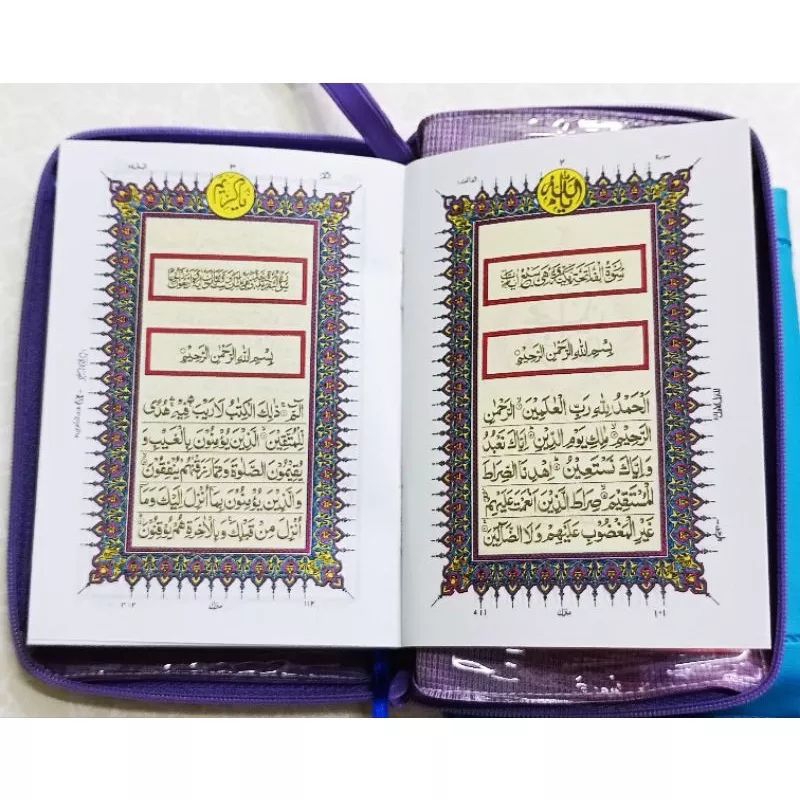 سورة
٢
سُوْرَةُ الْفَاتِحَةِ مَكِّيَّةٌ وَّهِيَ سَبْعُ اٰيَاتٍ
بِسْمِ اللّٰهِ الرَّحْمٰنِ الرَّحِيْمِ
اَلْحَمْدُ لِلّٰهِ رَبِّ الْعٰلَمِيْنَ ۝ الرَّحْمٰنِ
الرَّحِيْمِ ۝ مٰلِكِ يَوْمِ الدِّيْنِ ۝ اِيَّاكَ نَعْبُدُ
وَاِيَّاكَ نَسْتَعِيْنُ ۝ اِهْدِنَا الصِّرَاطَ
الْمُسْتَقِيْمَ ۝ صِرَاطَ الَّذِيْنَ اَنْعَمْتَ عَلَيْهِمْ
غَيْرِ الْمَغْضُوْبِ عَلَيْهِمْ وَلَا الضَّآلِّيْنَ ۝
٣
بِسْمِ اللّٰهِ الرَّحْمٰنِ الرَّحِيْمِ
الٓمّٓ ۝ ذٰلِكَ الْكِتٰبُ لَا رَيْبَ فِيْهِ هُدًى
لِّلْمُتَّقِيْنَ ۝ الَّذِيْنَ يُؤْمِنُوْنَ بِالْغَيْبِ وَ
يُقِيْمُوْنَ الصَّلٰوةَ وَمِمَّا رَزَقْنٰهُمْ يُنْفِقُوْنَ ۝
وَالَّذِيْنَ يُؤْمِنُوْنَ بِمَآ اُنْزِلَ اِلَيْكَ وَمَآ
اُنْزِلَ مِنْ قَبْلِكَ وَبِالْاٰخِرَةِ هُمْ يُوْقِنُوْنَ ۝